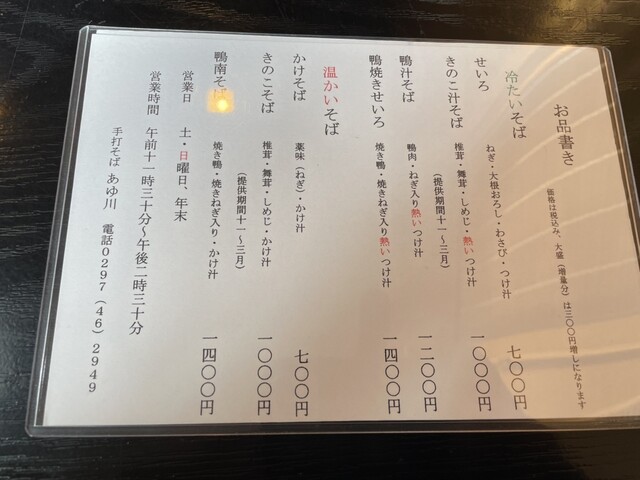 お品書き
価格は税込み、大盛(増量分)は三〇〇円増しになります
冷たいそば
せいろ ねぎ・大根おろし・わさび・つけ汁 七〇〇円
きのこ汁そば 椎茸・舞茸・しめじ・熱いつけ汁 一〇〇〇円
(提供期間十一~三月)
鴨汁そば 鴨肉・ねぎ入り熱いつけ汁 一二〇〇円
鴨焼きせいろ 焼き鴨・焼きねぎ入り熱いつけ汁 一四〇〇円
温かいそば
かけそば 薬味(ねぎ)・かけ汁 七〇〇円
きのこそば 椎茸・舞茸・しめじ・かけ汁 一〇〇〇円
(提供期間十一~三月)
鴨南そば 焼き鴨・焼きねぎ入り・かけ汁 一四〇〇円
営業日 土・日曜日、年末
営業時間 午前十一時三十分~午後二時三十分
手打そば あゆ川 電話0297(46)2949